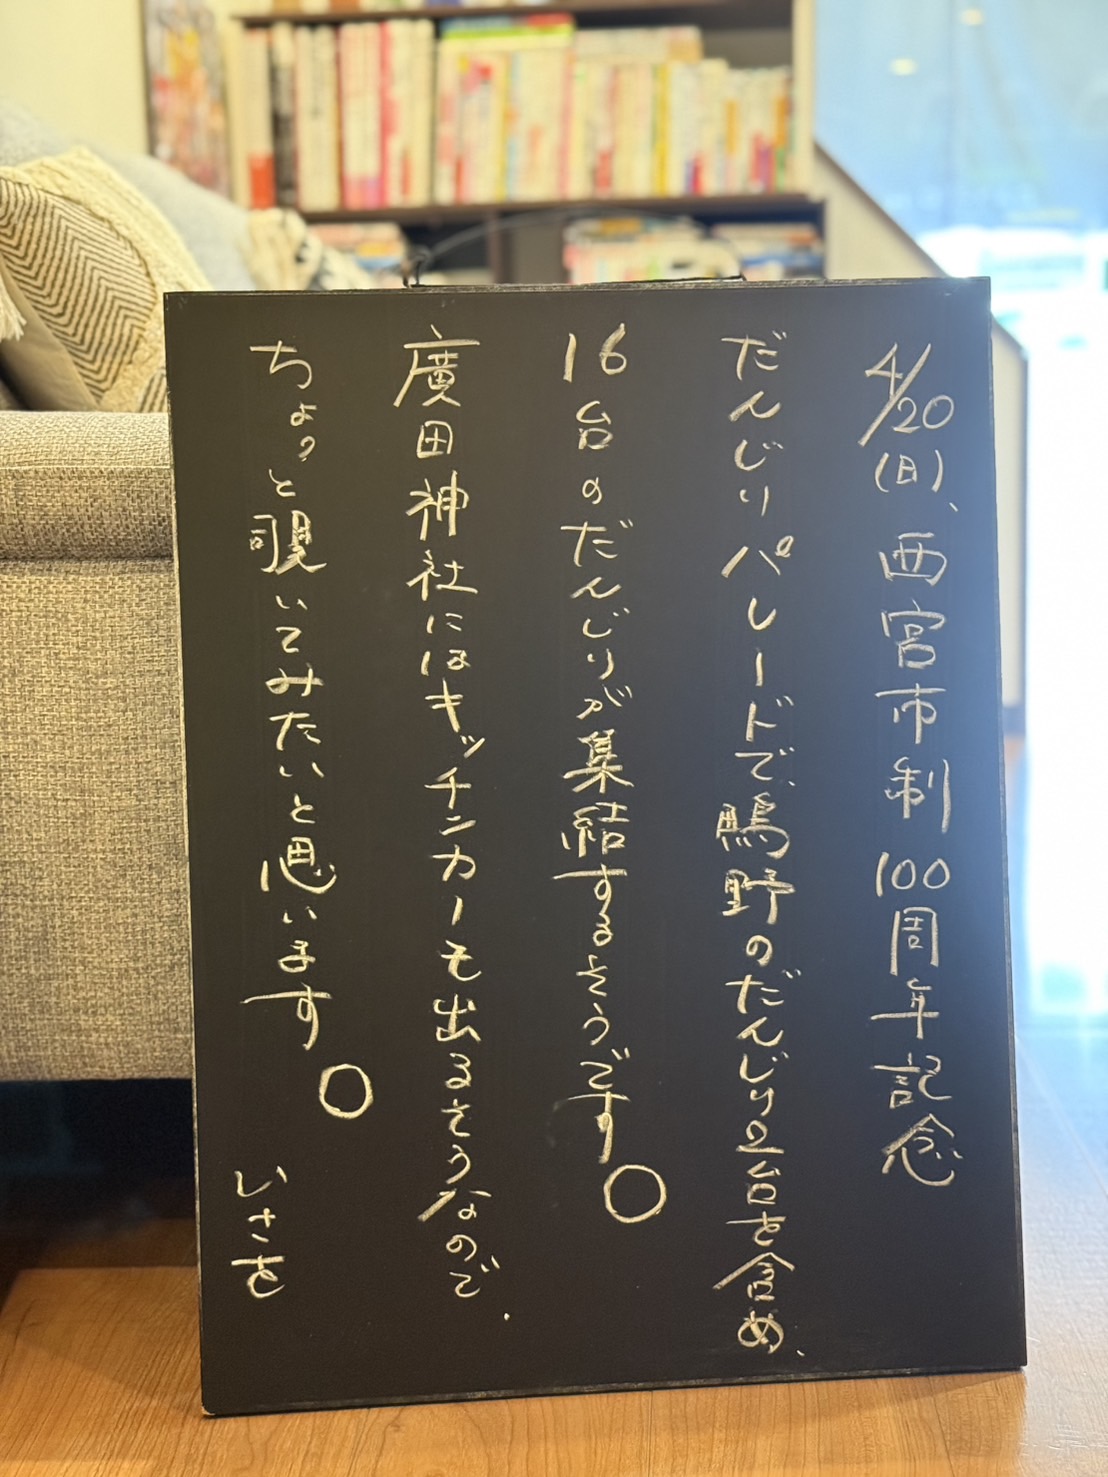 4/20(日)、西宮市制100周年記念
だんじりパレードで、鷲野のだんじり2台を含め、
16台のだんじりが集結するそうです。
廣田神社にはキッチンカーも出るそうなので、
ちょっと覗いてみたいと思います。
いさを